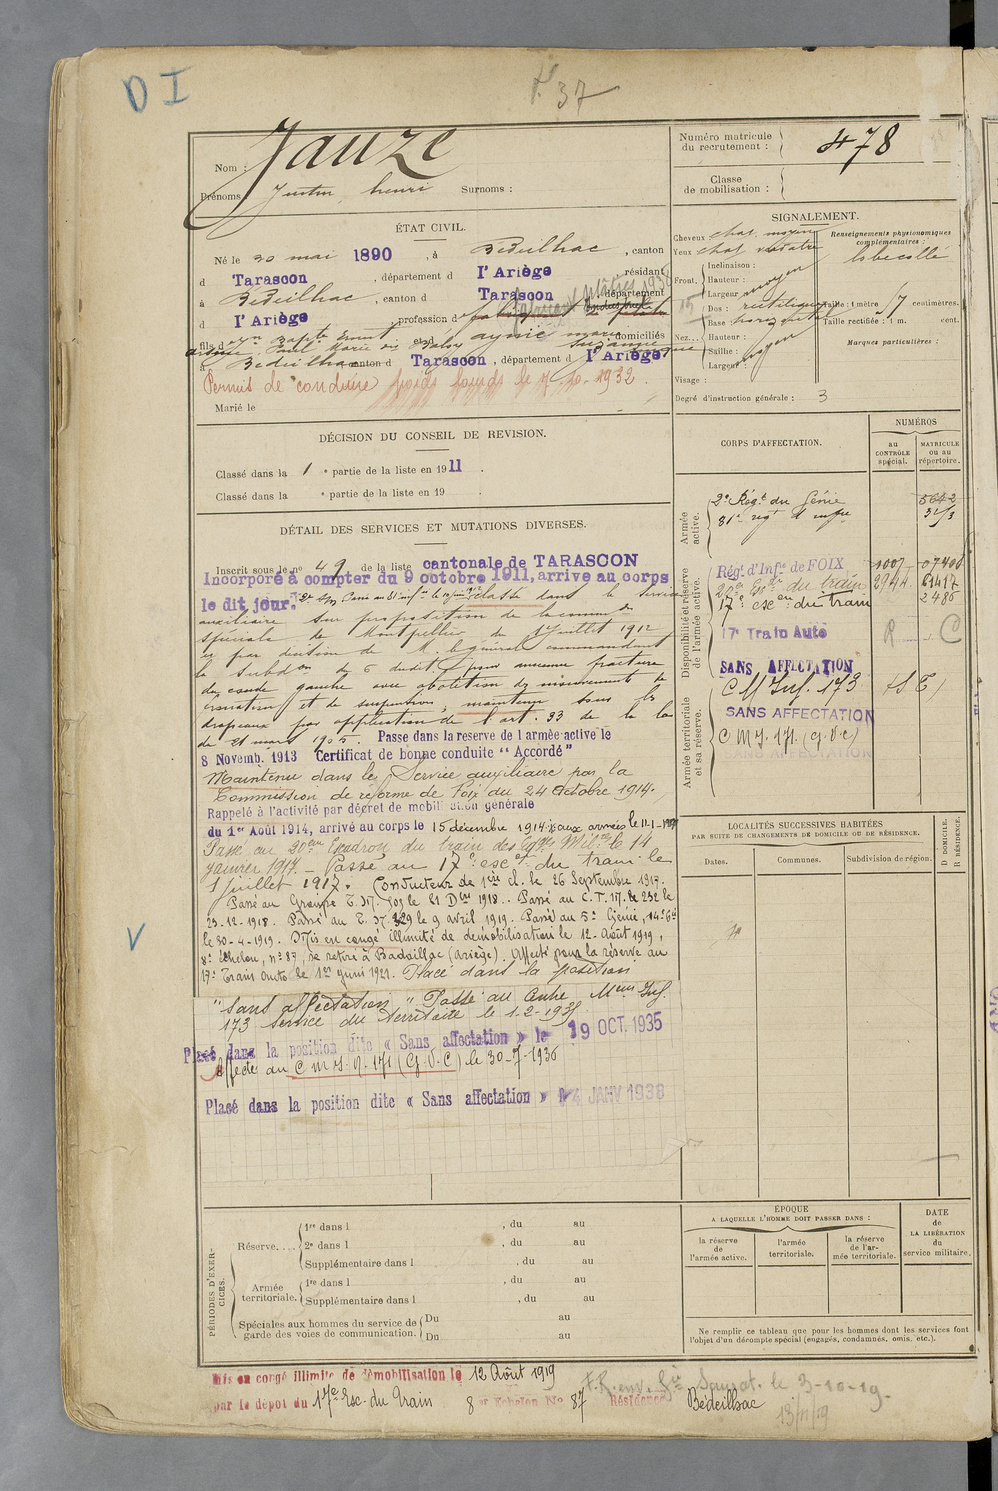 D I
F° 37
Nom : Jauze
Prénoms : Justin henri Surnoms :
Numéro matricule du recrutement : 478
Classe de mobilisation :
ÉTAT CIVIL.
Né le 30 mai 1890, à Bédeilhac, canton
d Tarascon, département d l'Ariège résidant
à Bédeilhac, canton d Tarascon, département
d l'Ariège, profession d
fils d et d domiciliés
à Bédeilhac canton d Tarascon, département d l'Ariège
Permis de conduire poids lourds le 7.10.1932.
Marié le
SIGNALEMENT.
Cheveux chat. moyen
Yeux
Front.
Inclinaison :
Hauteur : moyen
Largeur
Nez...
Dos : rectiligne
Base horizontal
Hauteur :
Saillie : moyen
Largeur :
Visage :
Renseignements physionomiques complémentaires :
Taille : 1 mètre centimètres.
Taille rectifiée : 1 m. cent.
Marques particulières :
Degré d'instruction générale : 3
DÉCISION DU CONSEIL DE REVISION.
Classé dans la 1e partie de la liste en 1911.
Classé dans la e partie de la liste en 19 .
DÉTAIL DES SERVICES ET MUTATIONS DIVERSES.
Inscrit sous le n° 49 de la liste cantonale de TARASCON
Incorporé à compter du 9 octobre 1911, arrive au corps
le dit jour. classé dans le service
auxiliaire sur proposition de la comm.on
spéciale de Montpellier du 1 Juillet 1912
et par décision de M. le général commandant
la Subd.on du 6 dudit pour ancienne fracture
du coude gauche avec abolition des mouvements de
pronation et de supination, maintenu sous les
drapeaux par application de l'art. 33 de la loi
du 21 mars 1905. Passe dans la réserve de l'armée active le
8 Novemb. 1913 Certificat de bonne conduite "Accordé"
Maintenu dans le Service auxiliaire par la
Commission de réforme de Foix du 24 Octobre 1914.
Rappelé à l'activité par décret de mobilisation générale
du 1er Août 1914, arrivé au corps le 15 décembre 1914. aux armées le 11-1-
Passé au 20em Escadron du train des Eqges Milres le 11
janvier 1917. - Passé au 17e esc.on du train le
1 juillet 1917. Conducteur de 1ère cl. le 26 Septembre 1917.
Passé au Groupe T.M. 703 le 21 Dbre 1918. Passé au C.T.M. de 232 le
23-12-1918. Passé au T.M. 329 le 9 avril 1919. Passé au 5e Génie, 14e Cie
le 30-4-1919. Mis en congé illimité de démobilisation le 12 Août 1919,
8e Echelon, n° 87, se retire à Badeillac (Ariège). Affecté pour la réserve au
17e Train Auto le 1er Juin 1921. Placé dans la position
"Sans affectation" Passé au Centre Mem Inf.
173 service du Territoire le 1-2-1935
Placé dans la position dite « Sans affectation » le 19 OCT. 1935
Affecté au C M I. N° 171 (G.V.C) le 30-7-1936
Placé dans la position dite « Sans affectation » le 4 JANV 1938
V
CORPS D'AFFECTATION.
NUMÉROS
au CONTRÔLE spécial.
MATRICULE ou au répertoire.
Armée active.
2e Régt du Génie 5642
81e regt d'infie
Disponibilité et réserve de l'armée active.
Régt d'Infie de FOIX 1007
20e Esc.on du train 2944
17e esc.on du train
17e Train Auto R C
SANS AFFECTATION
Armée territoriale et sa réserve.
C M Inf. 173
SANS AFFECTATION
C M I. 171. (G.V.C)
SANS AFFECTATION
LOCALITÉS SUCCESSIVES HABITÉES
PAR SUITE DE CHANGEMENTS DE DOMICILE OU DE RÉSIDENCE.
Dates.
Communes.
Subdivision de région.
D DOMICILE.
R RÉSIDENCE.
PÉRIODES D'EXERCICES.
Réserve....
1re dans l , du au
2e dans l , du au
Supplémentaire dans l , du au
Armée territoriale.
1re dans l , du au
Supplémentaire dans l , du au
Spéciales aux hommes du service de garde des voies de communication.
Du au
Du au
ÉPOQUE
A LAQUELLE L'HOMME DOIT PASSER DANS :
la réserve de l'armée active.
l'armée territoriale.
la réserve de l'armée territoriale.
DATE de LA LIBÉRATION du service militaire.
Ne remplir ce tableau que pour les hommes dont les services font
l'objet d'un décompte spécial (engagés, condamnés, omis, etc.).
Mis en congé illimité de démobilisation le 12 Août 1919
par le dépôt du 17e Esc. du Train 8me Echelon No 87 Résidence Bédeilhac
F.R. env. Saurat. le 3-10-19.
13/11/19